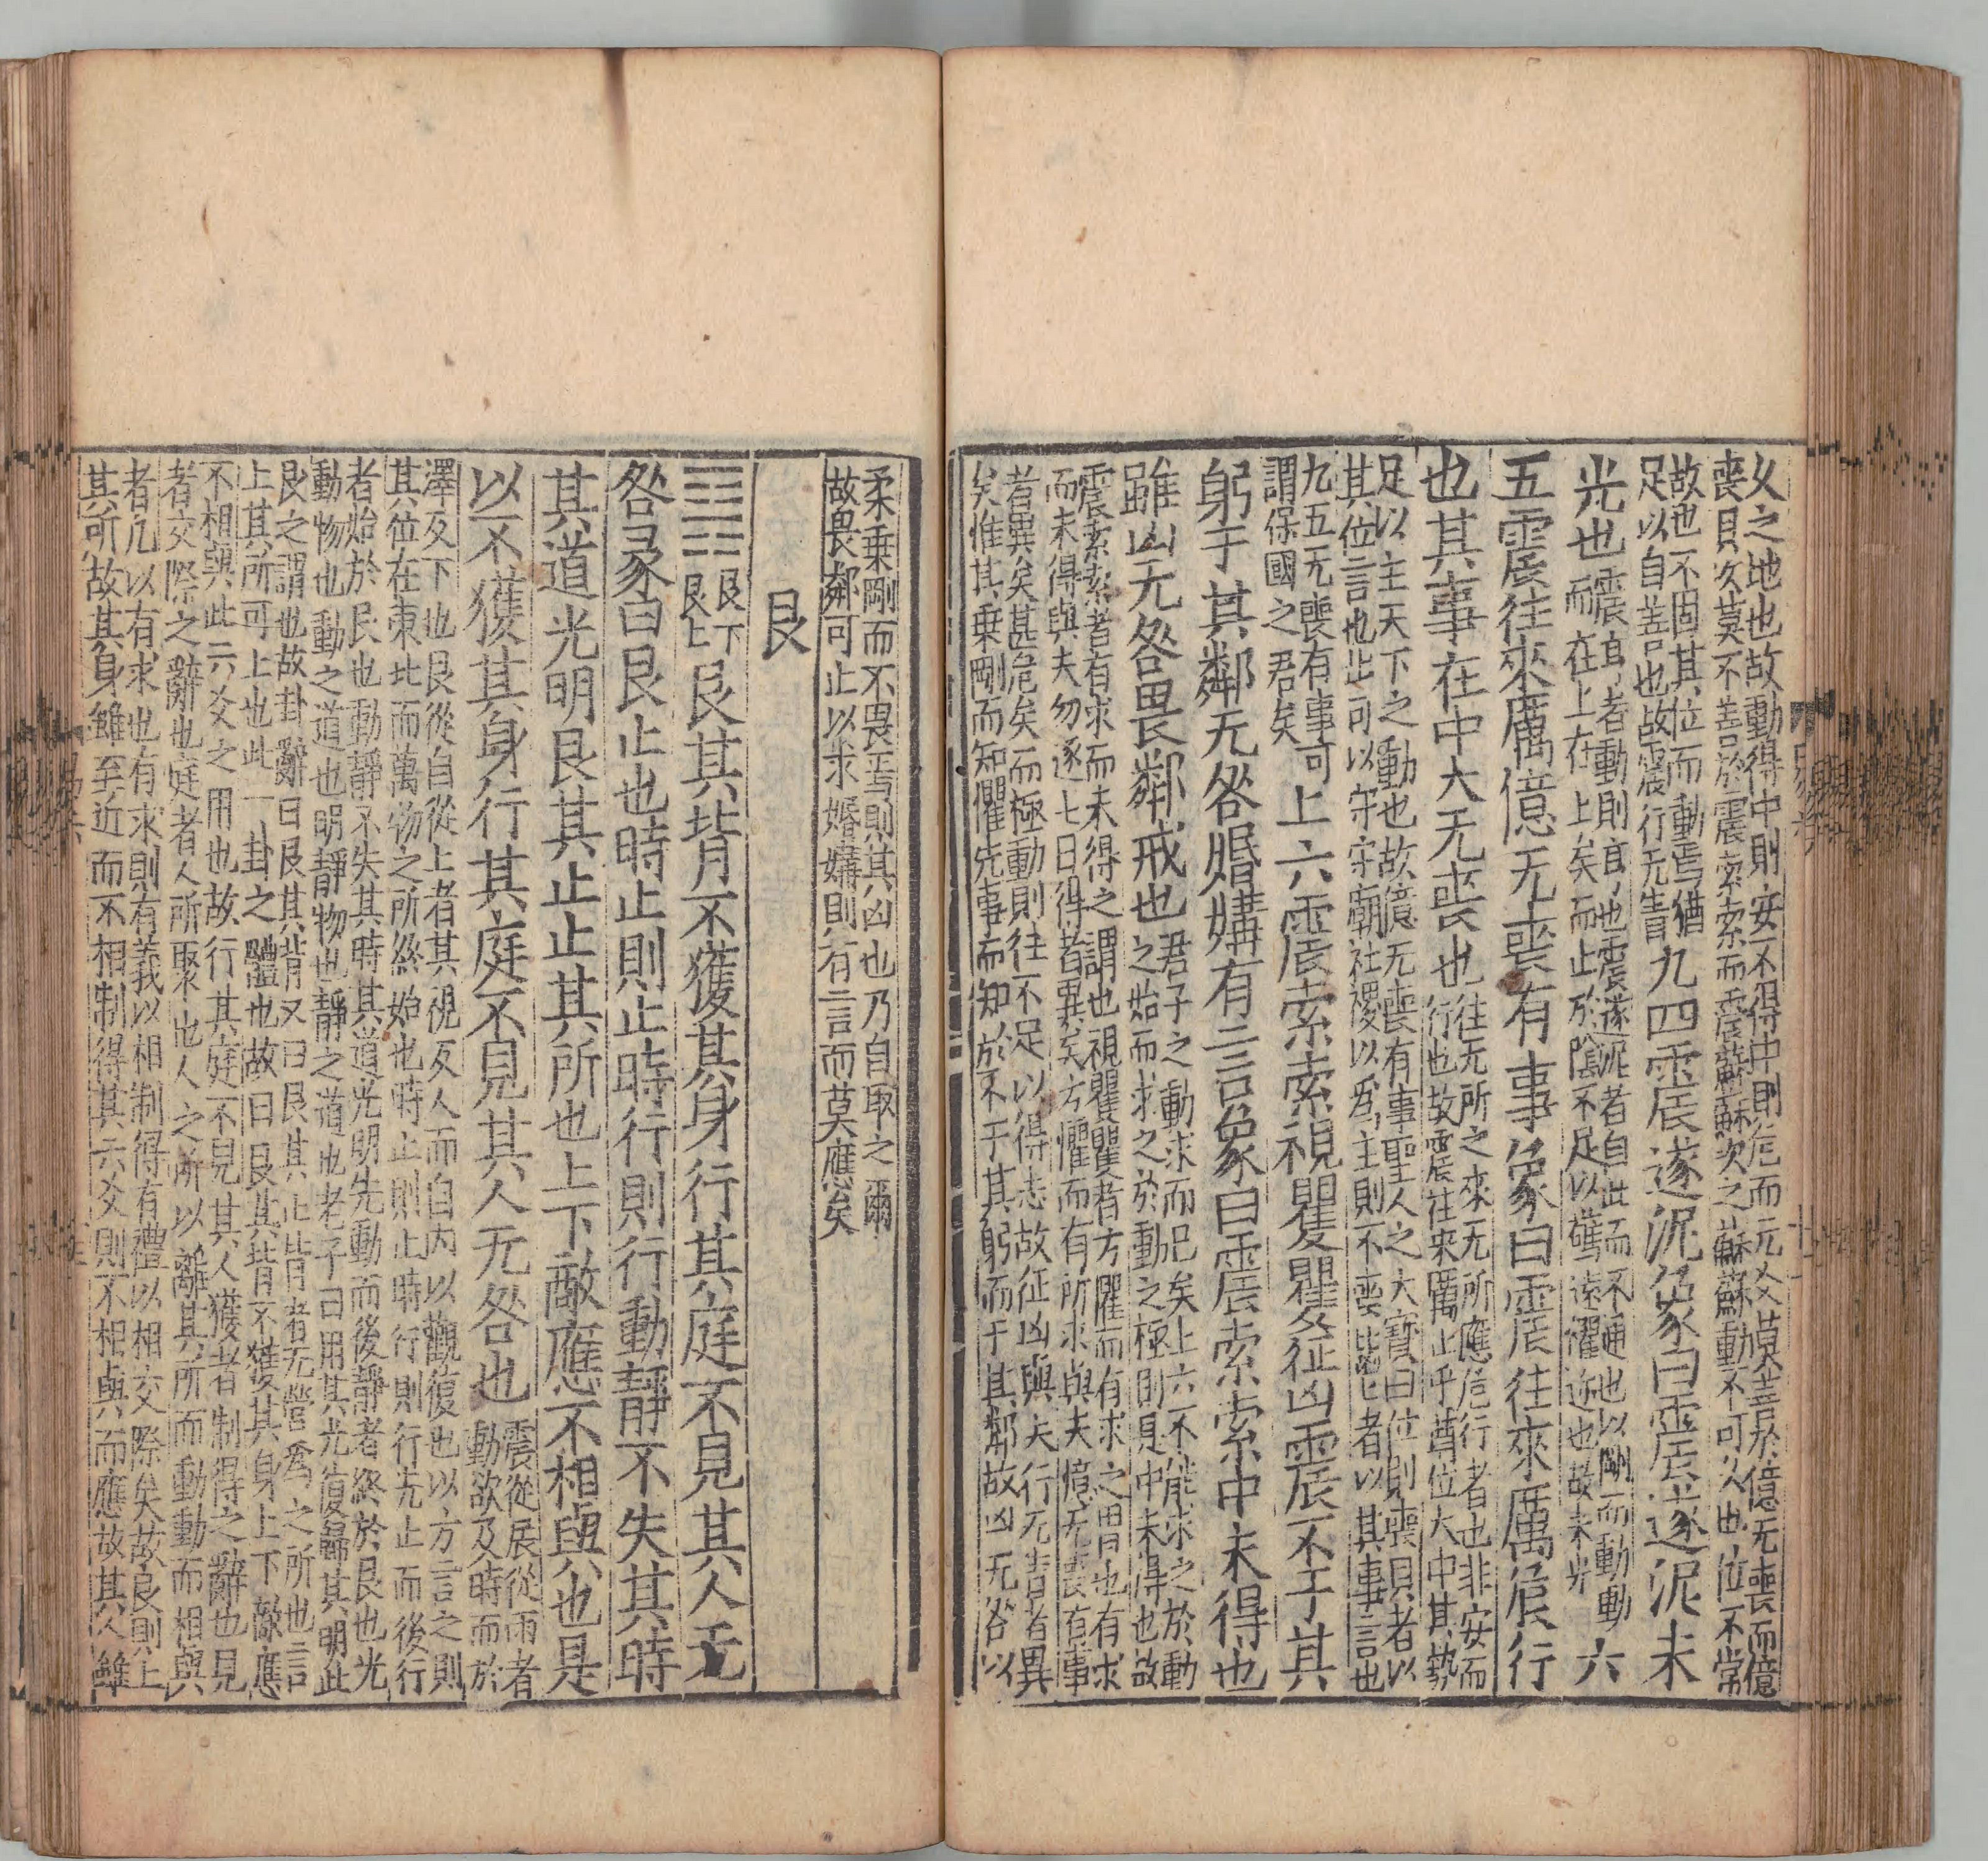 久之地也故動得中則安不得中則危而无久莫善於億无喪而億
喪貝次莫不善於震索索而震蘇蘇次之蘇蘇動不可以久也位不常
故也不固其位而動焉猶
足以自善也故震行无眚
九四震遂泥象曰震遂泥未
光也
震亙者動則亙也震遂泥者自此而不通也以剛而動動
而在上在上矣而止於陰不足以驚遠懼迩也故未光
六
五震往來厲億无喪有事象曰震往來厲危行
也其事在中大无喪也
往无所之來无所應危行者也非安而
行也故震往來厲止乎尊位大中其勢
足以主天下之動也故億无喪有事聖人之大寶曰位則喪貝者以
其位言也此可以守宗廟社稷以爲主則不喪匕者以其事言也
九五无喪有事可
謂保國之君矣
上六震索索視矍矍征凶震不于其
躬于其鄰无咎婚媾有言象曰震索索中未得也
雖凶无咎畏鄰戒也
君子之動求而已矣上六不能求之於動
之始而求之於動之極則見中未得也故
震索索者有求而未得之謂也視矍矍者方懼而有求之謂也有求
而未得與夫勿逐七日得者異矣方懼而有所求與夫億无喪有事
者異矣甚危矣而極動則往不足以得志故征凶與夫行无眚者異
矣惟其乘剛而知懼先事而知於不于其躬而于其鄰故凶无咎以
柔乗剛而不畏焉則其凶也乃自取之爾
故畏鄰可止以求婚媾則有言而莫應矣
艮
艮下
艮上
艮其背不獲其身行其庭不見其人无
咎彖曰艮止也時止則止時行則行動靜不失其時
其道光明艮其止止其所也上下敵應不相與也是
以不獲其身行其庭不見其人无咎也
震從辰從雨者
動欲及時而於
澤反下也艮從自從上者其視反人而自内以觀復也以方言之則
其位在東北而萬物之所終始也時止則止時行則行先止而後行
者始於艮也動靜不失其時其道光明先動而後靜者終於艮也光
動物也動之道也明靜物也靜之道也老子曰用其光復歸其明此
艮之謂也故卦辭曰艮其背又曰艮其止背者无營爲之所也言
上其所可上也此一卦之體也故曰艮其背不獲其身上下敵應
不相與此六爻之用也故行其庭不見其人獲者制得之辭也見
者交際之辭也庭者人所聚也人之所以離其所而動動而相與
者凡以有求也有求則有義以相制得有禮以相交際矣故艮則上
其所故其身雖至近而不相制得其六爻則不相與而應故其人雖